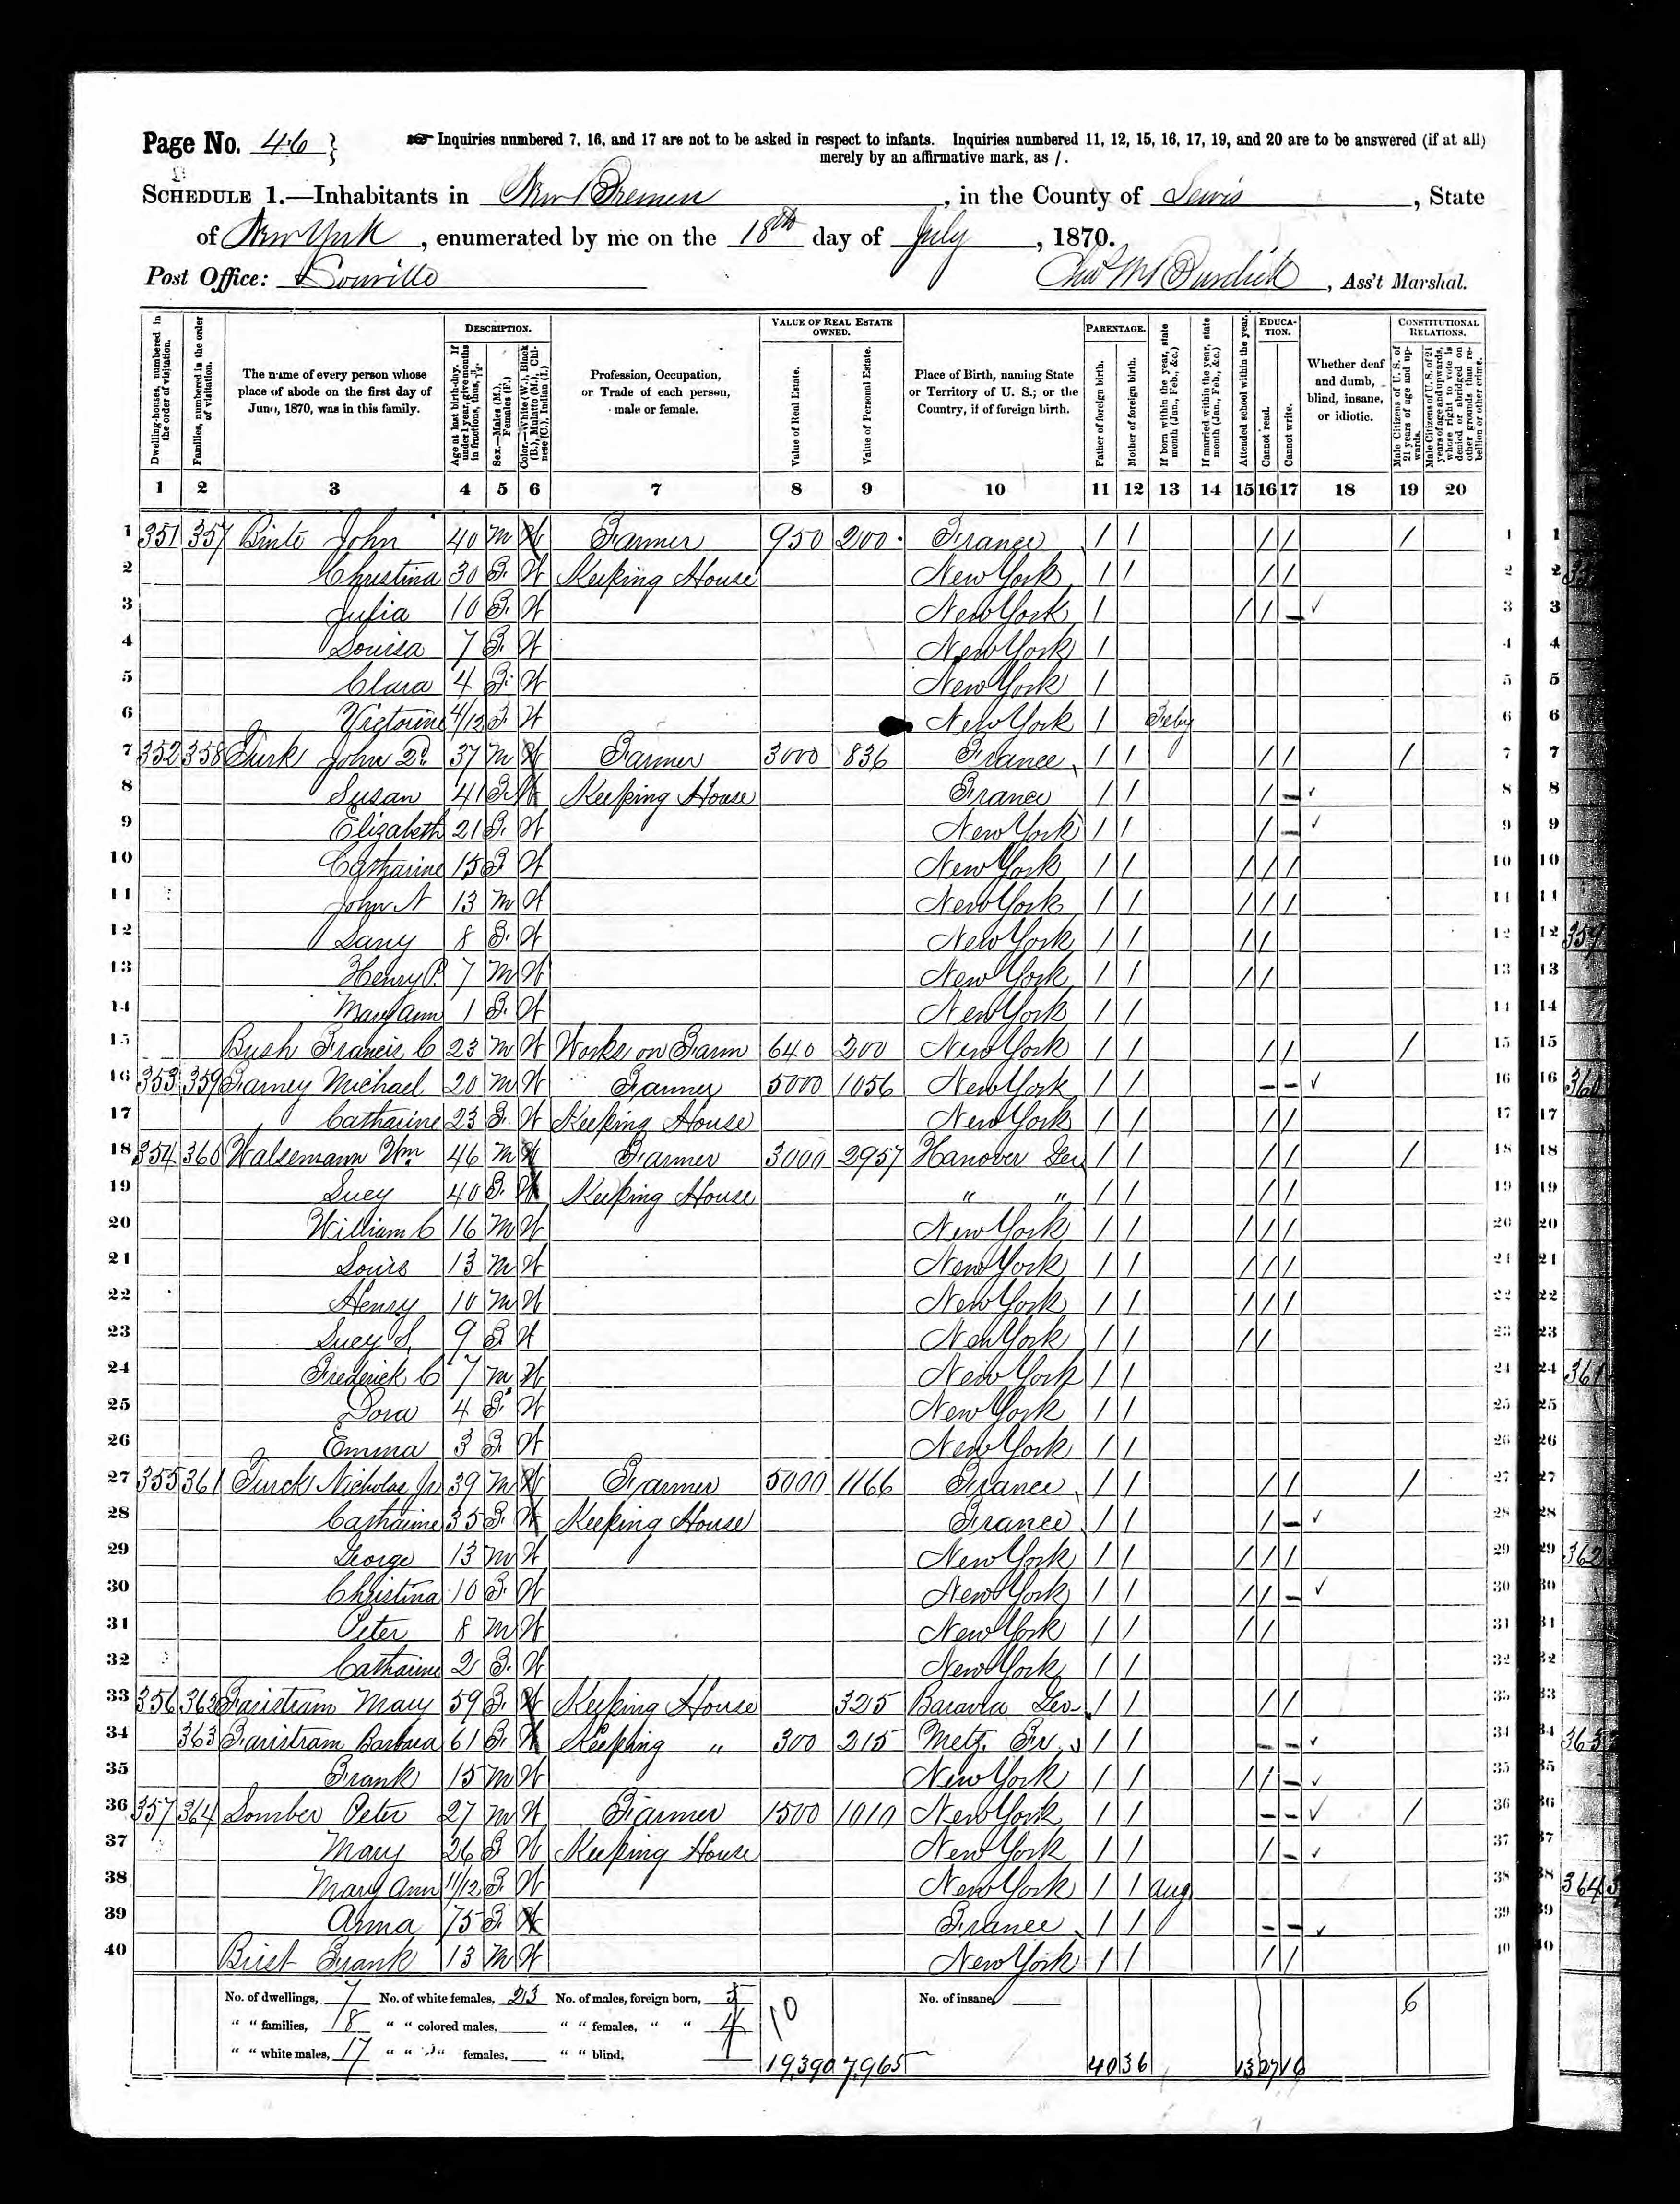 Page No. 46
Inquiries numbered 7, 16, and 17 are not to be asked in respect to infants. Inquiries numbered 11, 12, 15, 16, 17, 19, and 20 are to be answered (if at all)
merely by an affirmative mark, as /.
SCHEDULE 1.—Inhabitants in New Bremen, in the County of Lewis, State
of New York, enumerated by me on the 18th day of July, 1870.
Post Office: Lowville
Chas M Burdick, Ass't Marshal.
Dwelling-houses, numbered in the order of visitation.
Families, numbered in the order of visitation.
The name of every person whose place of abode on the first day of June, 1870, was in this family.
DESCRIPTION.
Age at last birth-day. If under 1 year, give months in fractions, thus, 3/12.
Sex.—Males (M.), Females (F.)
Color.—White (W.), Black (B.), Mulatto (M.), Chinese (C.), Indian (I.)
Profession, Occupation, or Trade of each person, male or female.
VALUE OF REAL ESTATE OWNED.
Value of Real Estate.
Value of Personal Estate.
Place of Birth, naming State or Territory of U. S.; or the Country, if of foreign birth.
PARENTAGE.
Father of foreign birth.
Mother of foreign birth.
If born within the year, state month (Jan., Feb., &c.)
If married within the year, state month (Jan., Feb., &c.)
Attended school within the year.
EDUCATION.
Cannot read.
Cannot write.
Whether deaf and dumb, blind, insane, or idiotic.
CONSTITUTIONAL RELATIONS.
Male Citizens of U. S. of 21 years of age and upwards.
Male Citizens of U. S. of 21 years of age and upwards, whose right to vote is denied or abridged on other grounds than rebellion or other crime.
1 2 3 4 5 6 7 8 9 10 11 12 13 14 15 16 17 18 19 20
1 351 357 Binte John 40 M W Farmer 950 200 France / / / / / 1
2 Christina 30 F W Keeping House New York / / / / 2
3 Julia 10 F W New York / / / – ✓ 3
4 Louisa 7 F W New York / 4
5 Clara 4 F W New York / 5
6 Victorine 4/12 F W New York / Feby 6
7 352 358 Turk John 2d 37 M W Farmer 3000 836 France / / / / / 7
8 Susan 41 F W Keeping House France / / / – ✓ 8
9 Elizabeth 21 F W New York / / / – ✓ 9
10 Catharine 15 F W New York / / / / / 10
11 John N 13 M W New York / / / / / 11
12 Lany 8 F W New York / / / / 12
13 Henry P. 7 M W New York / / / / 13
14 Mary Ann 1 F W New York / / 14
15 Bush Francis C 23 M W Works on Farm 640 200 New York / / / / / 15
16 353 359 Farney Michael 20 M W Farmer 5000 1056 New York / / – – ✓ 16
17 Catharine 23 F W Keeping House New York / / / / 17
18 354 360 Walsemann Wm 46 M W Farmer 3000 2957 Hanover Ger / / / / / 18
19 Lucy 40 F W Keeping House " " / / / / 19
20 William C 16 M W New York / / / / / 20
21 Louis 13 M W New York / / / / / 21
22 Henry 10 M W New York / / / / / 22
23 Lucy S. 9 F W New York / / / / 23
24 Frederick C 7 M W New York / / 24
25 Dora 4 F W New York / / 25
26 Emma 3 F W New York / / 26
27 355 361 Turck Nicholas Jr 39 M W Farmer 5000 1166 France / / / / / 27
28 Catharine 35 F W Keeping House France / / / – ✓ 28
29 George 13 M W New York / / / / / 29
30 Christina 10 F W New York / / / / – ✓ 30
31 Peter 8 M W New York / / / / 31
32 Catharine 2 F W New York / / 32
33 356 362 Faristram Mary 59 F W Keeping House 325 Bavaria Ger / / / / 33
34 363 Faristram Barbara 61 F W Keeping " 300 215 Metz. Fr / / – – ✓ 34
35 Frank 15 M W New York / / / / – ✓ 35
36 357 364 Lomber Peter 27 M W Farmer 1500 1010 New York / / – – ✓ / 36
37 Mary 26 F W Keeping House New York / / / – ✓ 37
38 Mary Ann 11/12 F W New York / / Aug 38
39 Anna 75 F W France / / – – ✓ 39
40 Brist Frank 13 M W New York / / / / 40
No. of dwellings, 7 No. of white females, 23 No. of males, foreign born, No. of insane,
" " families, 18 " " colored males, " " females, " " 4
" " white males, 17 " " " females, " " blind,
10
19,390 7,965 40 36 13 27 16 6
359
361
362